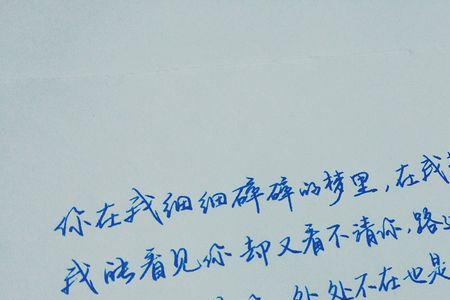 你在我细细碎碎的梦里,在我
我能看见你却又看不请你,路
处处不在也是